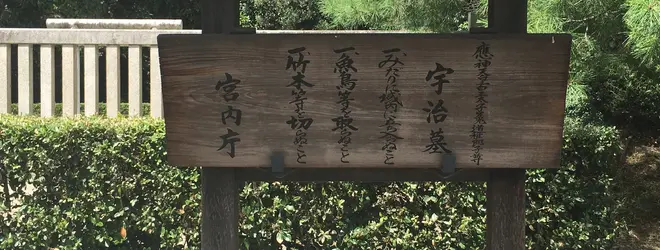 應神天皇皇太子菟道稚郎子尊
宇治墓
一みだりに域内に立入らぬこと
一魚鳥等を取らぬこと
一竹木等を切らぬこと
宮内庁